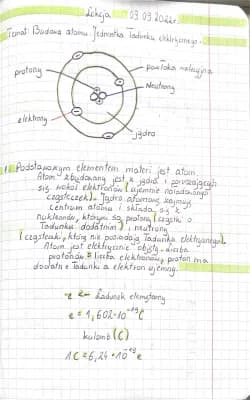 Lekcja 03.03.2022r.
Temat: Budowa atomu. Jednostka ładunku elektrycznego.
protony
powłoka
Neutrony
elektrony
jądro
1. Podstawowym elementem materi jest atom.
Atom zbudowany jest z jądra i poruszających
się wokół elektronów (ujemnie naładowanego
cząsteczek). Jądro atomowe zajmuje
centrum atomu i składa się z
nukleonów, którymi są protony (cząstki o
ładunku dodatnim) i neutrony
(cząsteczki, które nie posiadają ładunku elektrycznego).
Atom jest elektrycznie obojętny - liczba
protonów = liczba elektronów, proton ma
dodatni ładunek a elektron ujemny.
e - ładunek elementarny
e = 1,602·10⁻¹⁹ C
kulomb (C)
1C = 6,24·10⁻¹⁹ e